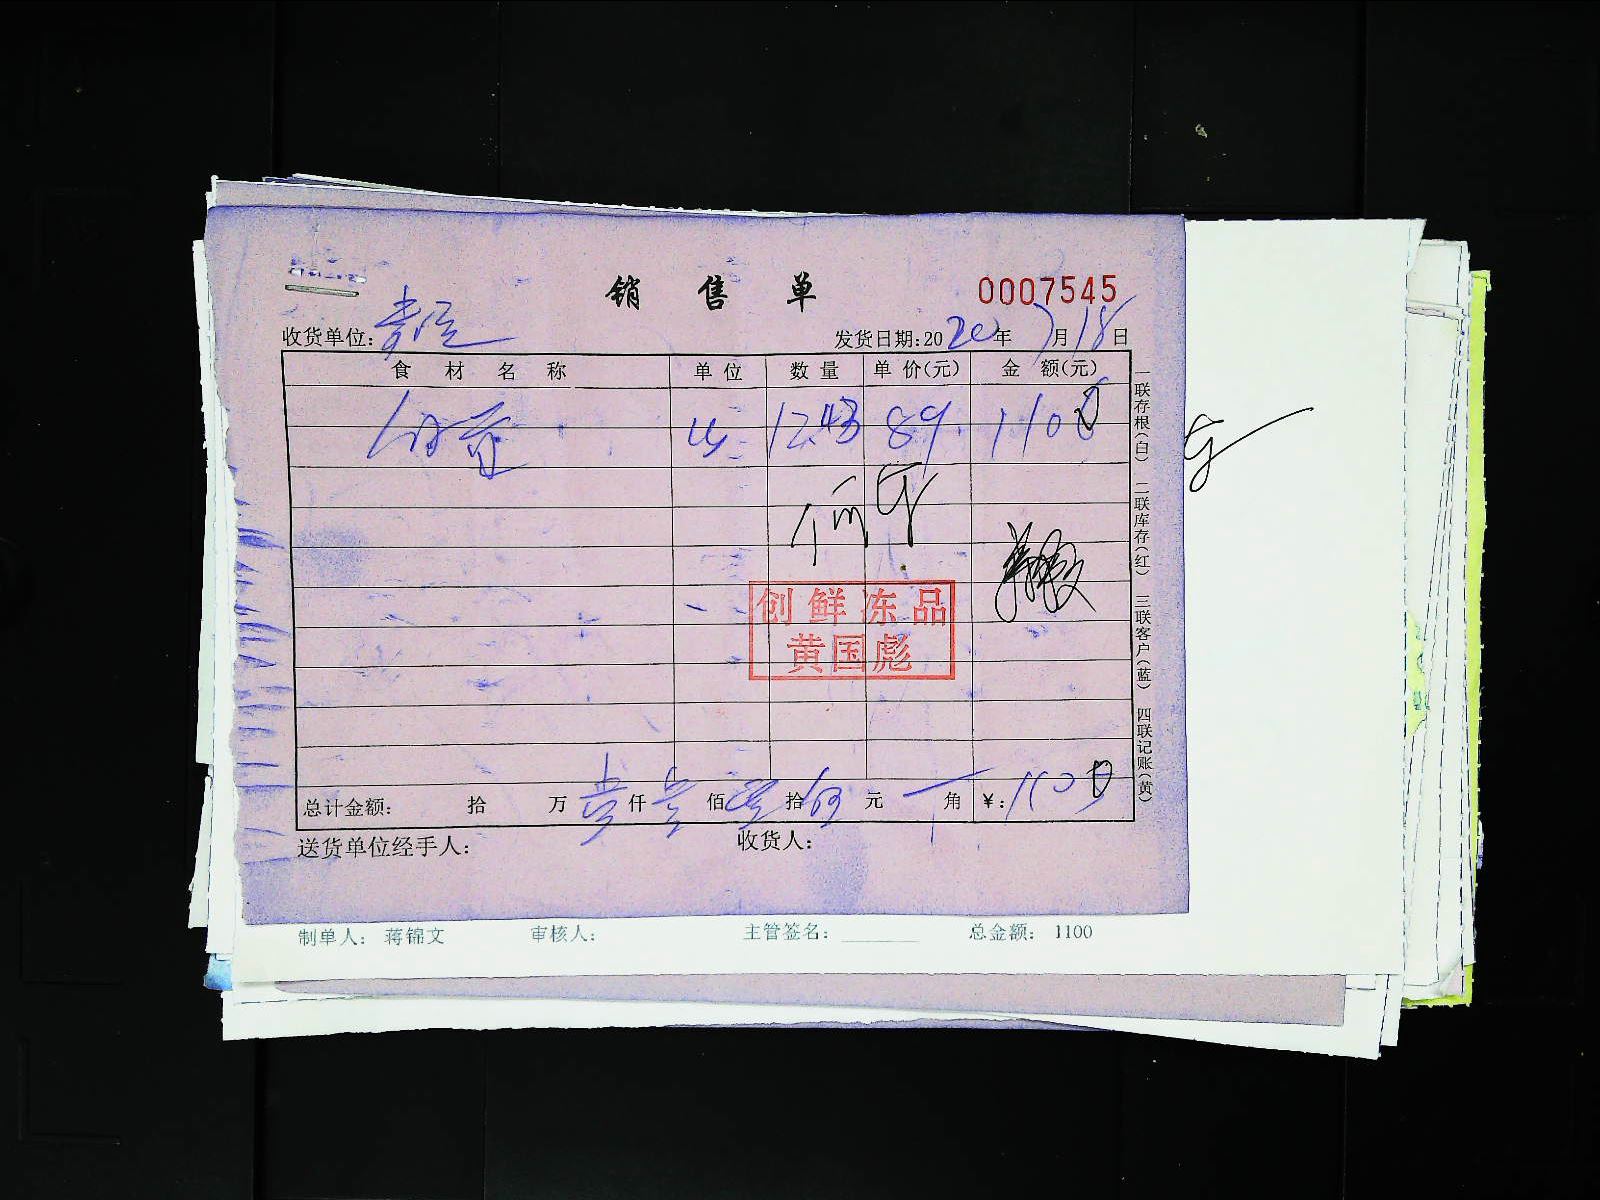 销售单
0007545
收货单位:
发货日期:2020年7月18日
食材名称 单位 数量 单价(元) 金额(元)
12.43 89 1100
创鲜冻品
黄国彪
总计金额: 拾 万 仟 佰 拾 元 角 ¥:1100
送货单位经手人: 收货人:
一联存根(白) 二联库存(红) 三联客户(蓝) 四联记账(黄)
制单人: 蒋锦文 审核人: 主管签名: 总金额: 1100